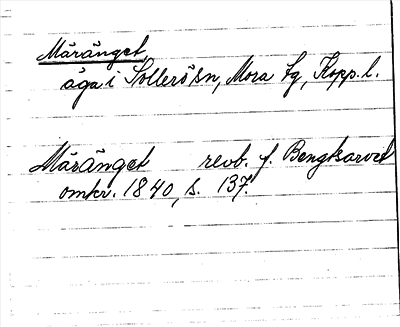 Märänget
äga i Sollerö sn, Mora tg, Kopp. l.
Märänget revb. f. Bengtsarvet
omkr. 1840, s. 137.